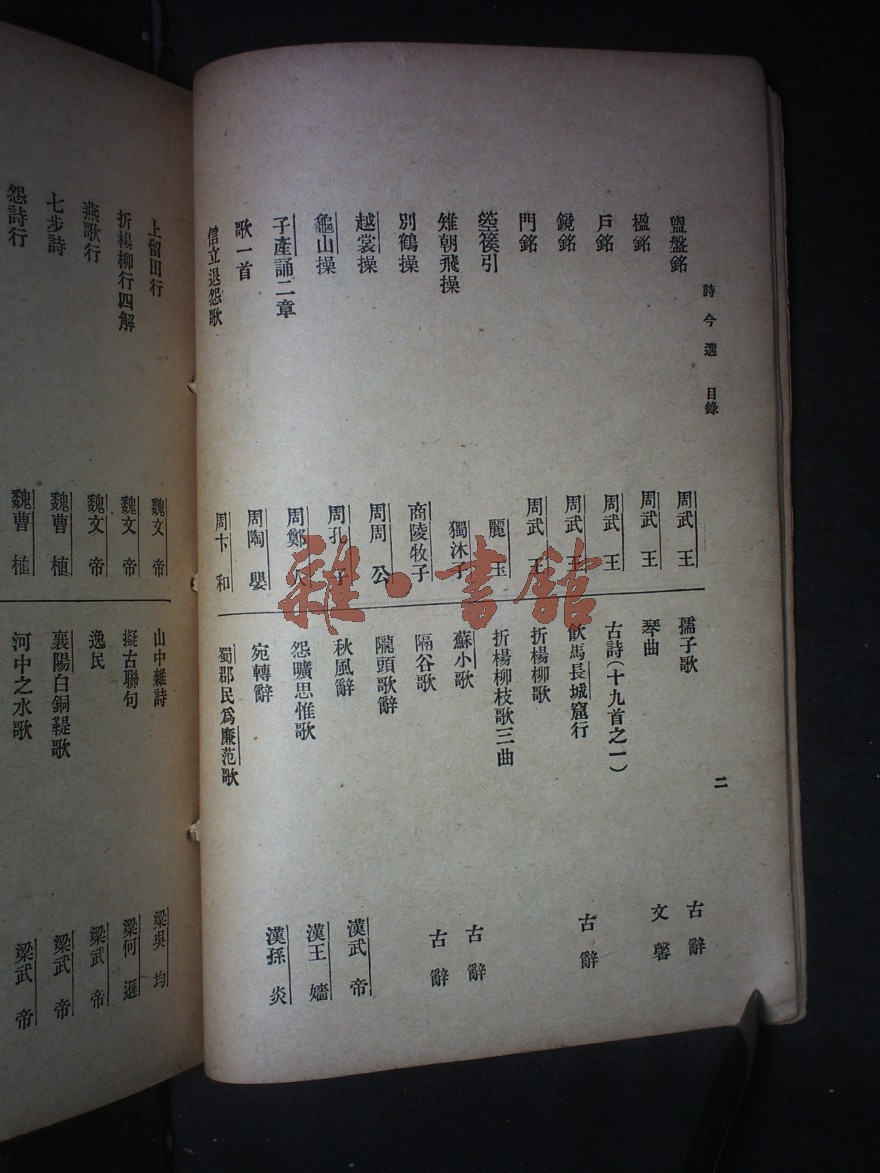 詩今選 目錄
二
盥盤銘 周武王
楹銘 周武王
戶銘 周武王
鏡銘 周武王
門銘 周武王
箜篌引 麗玉
雉朝飛操 獨沐子
別鶴操 商陵牧子
越裳操 周周公
龜山操 周孔子
子產誦二章 周鄭人
歌一首 周陶嬰
信立退怨歌 周卞和
孺子歌 古辭
琴曲 文馨
古詩(十九首之一)
飲馬長城窟行 古辭
折楊柳歌
折楊柳枝歌三曲
蘇小歌 古辭
隔谷歌 古辭
隴頭歌辭
秋風辭 漢武帝
怨曠思惟歌 漢王嬙
宛轉辭 漢孫炎
蜀郡民為廉范歌
上留田行 魏文帝
折楊柳行四解 魏文帝
燕歌行 魏文帝
七步詩 魏曹植
怨詩行 魏曹植
山中雜詩 梁吳均
擬古聯句 梁何遜
逸民 梁武帝
襄陽白銅鞮歌 梁武帝
河中之水歌 梁武帝
雜·書館